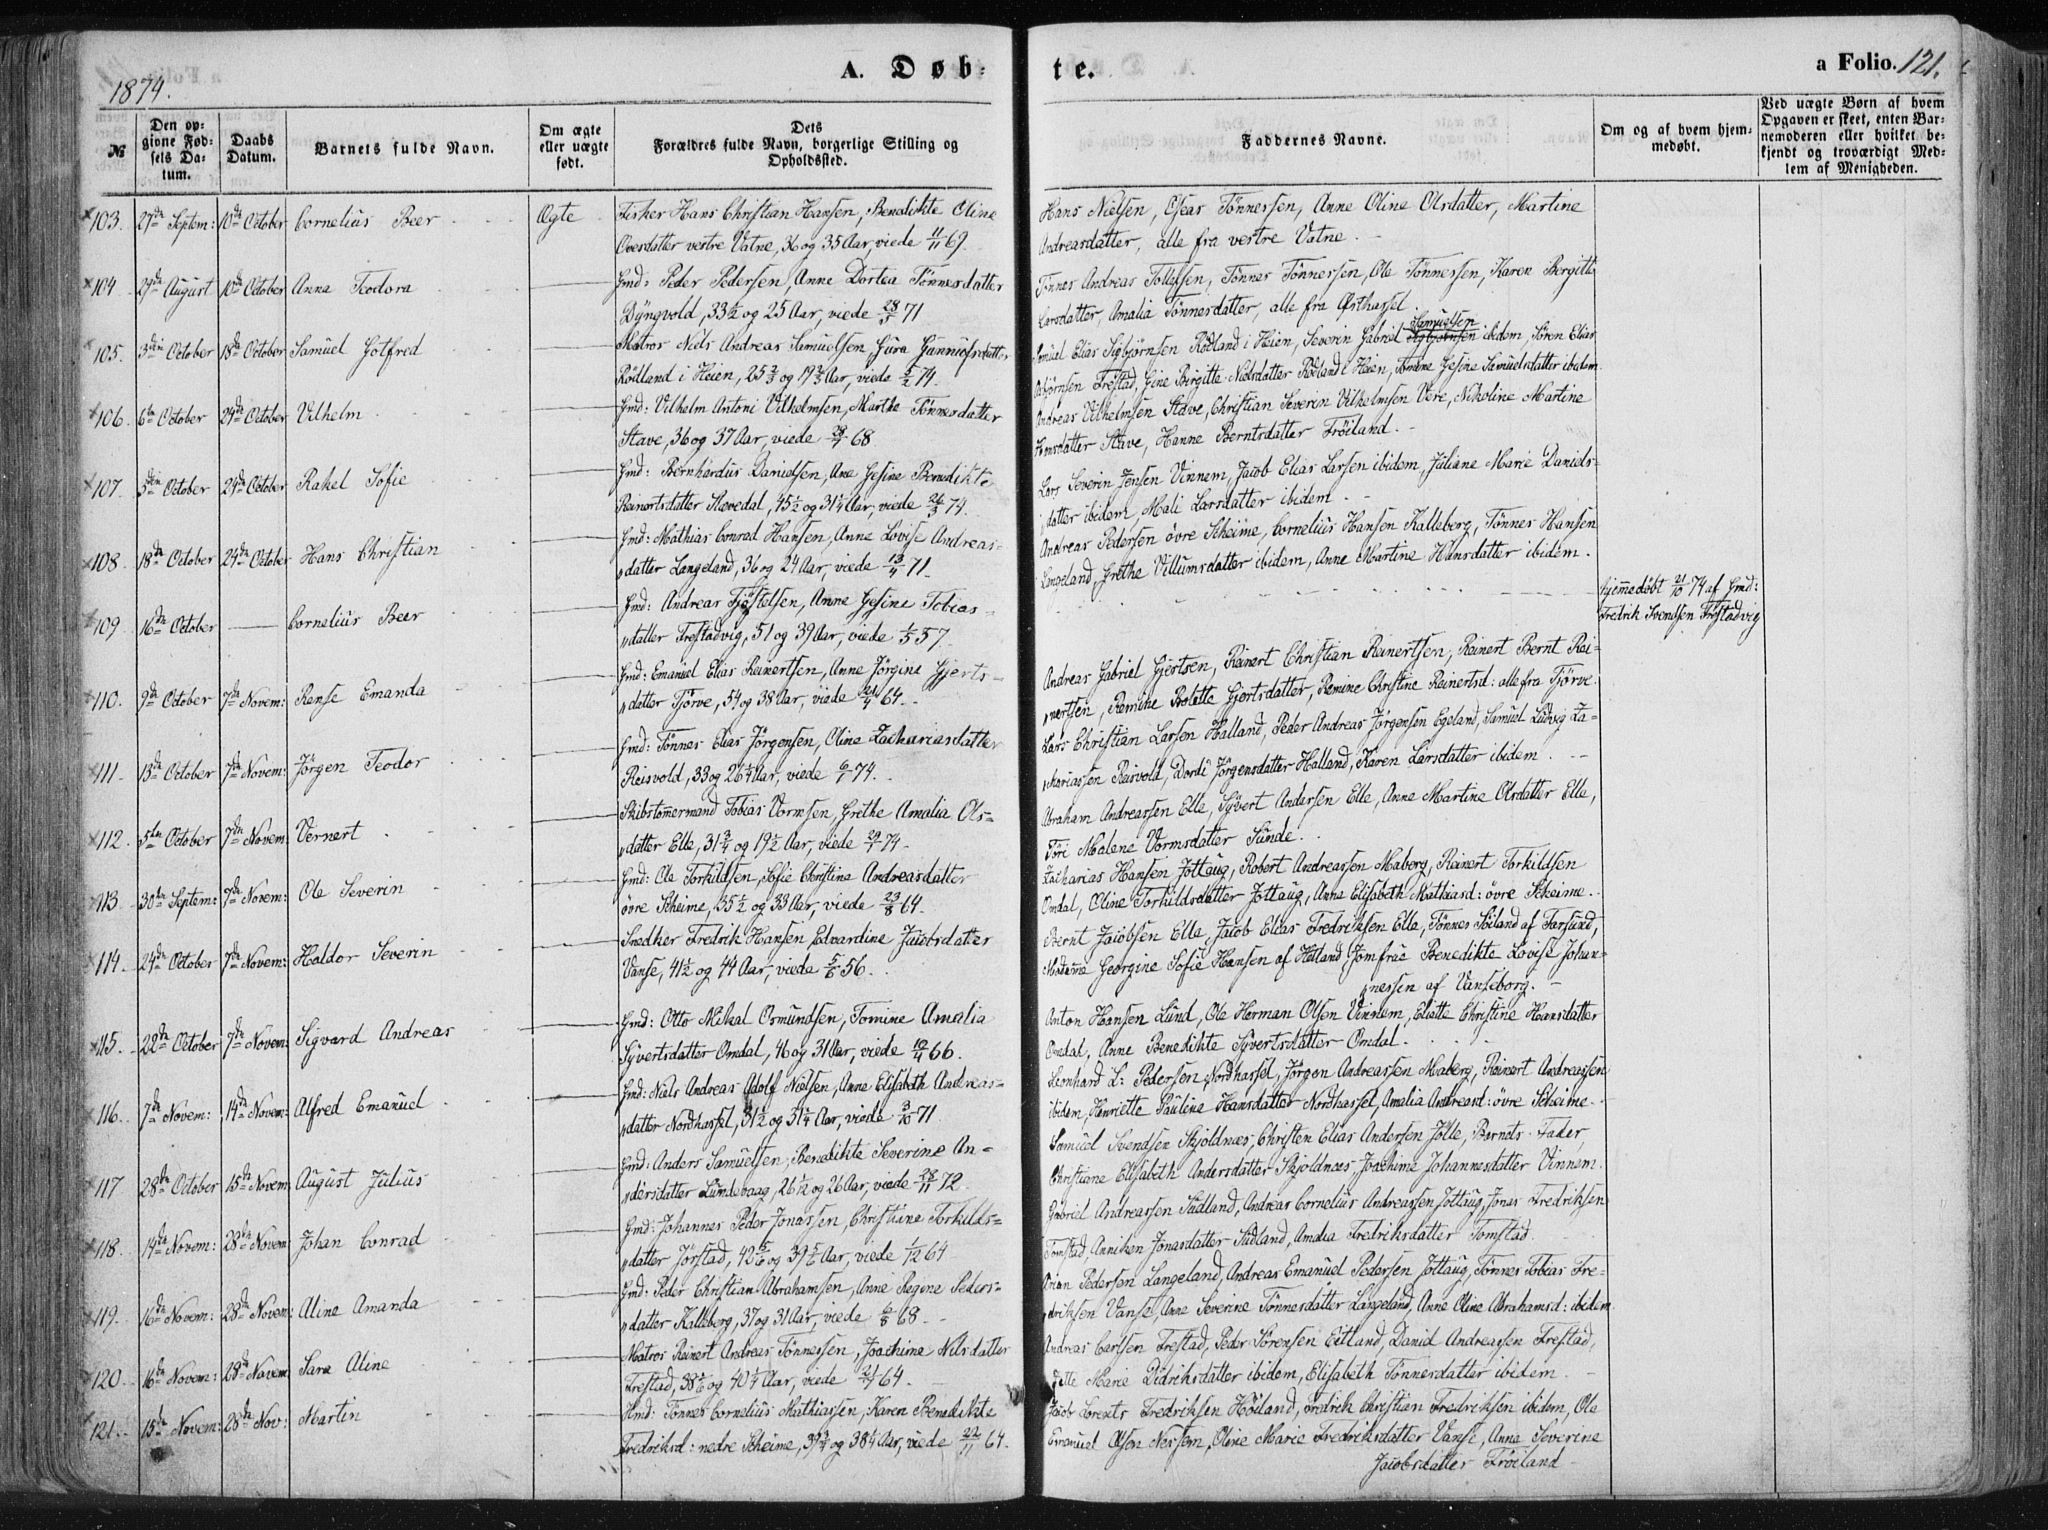 1874.
A. Døb-
te.
a Folio. 121.
№
Den opgivne Fødsels Datum.
Daabs Datum.
Barnets fulde Navn.
Om ægte eller uægte født.
Dets Forældres fulde Navn, borgerlige Stilling og Opholdssted.
Faddernes Navne.
Om og af hvem hjemmedøbt.
Ved uægte Børn af hvem Opgaven er skeet, enten Barnemoderen eller hvilket bekjendt og troværdigt Medlem af Menigheden.
103. 27de Septem: 10de October Cornelius Beer Ægte Fisker Hans Christian Hansen, Benedikte Oline
Ovesdatter vestre Vatne, 36 og 35 Aar, viede 11/11 69.
Hans Nielsen, Osear Tönnessen, Anne Oline Olsdatter, Martine
Andreasdatter, alle fra vestre Vatne.
104. 29de August 10de October Anna Teodora Gmd: Peder Pedersen, Anne Dortea Tönnesdatter
Dyngvold, 33 1/2 og 25 Aar, viede 71
Tönnes Andreas Tollefsen, Tönnes Tönnessen, Ole Tönnessen, Karen Bergitte
Larsdatter, Amalia Tönnesdatter, alle fra Østhassel.
105. 3die October 18de October Samuel Gotfred Matros Niels Andreas Samuelsen, Gura Gunnufsdatter
Rødland i Heien, 25 2/3 og 19 2/3 Aar, viede 74.
Samuel Elias Sigbjørnsen Rødland i Heien, Severin Gabriel Samuelsen ibidem, Sören Elias
Asbjørnsen Frestad, Gine Birgitte Nielsdatter Rødland i Heien, Tomine Gesine Samuelsdatter ibidem
106. 6te October 24de October Vilhelm Gmd: Vilhelm Antoni Vilhelmsen, Marthe Tönnesdatter
Stave, 36 og 37 Aar, viede 68.
Andreas Vilhelmsen Stave, Christian Severin Vilhelmsen Vere, Nikoline Martine
Tomsdatter Stave, Hanne Berntsdatter Frøiland.
107. 5te October 24de October Rakel Sofie Gmd: Bernhardus Danielsen, Ane Gesine Benedikte
Reinertsdatter Stevedal, 45 1/2 og 31 1/4 Aar, viede 26/3 74.
Lars Severin Jensen Vinnem, Jacob Elias Larsen ibidem, Juliane Marie Daniels-
datter ibidem, Mali Larsdatter ibidem.
108. 18de October 24de October Hans Christian Gmd: Mathias Conrad Hansen, Anne Lovise Andreas-
datter Langeland, 36 og 24 Aar, viede 13/4 71.
Andreas Pedersen övre Skeime, Cornelius Hansen Kalleberg, Tönnes Hansen
Langeland, Grethe Villumsdatter ibidem, Anne Martine Hansdatter ibidem.
109. 16de October Cornelius Beer Gmd: Andreas Tjøstelsen, Anne Gesine Tobias-
datter Frestadvig, 51 og 39 Aar, viede 1/5 57.
hjemmedøbt 21/10 74 af Gmd:
Fredrik Svendsen Frestadvig
110. 9de October 7de Novem: Rense Emanda Gmd: Emanuel Elias Reinertsen, Anne Jörgine Gjerts-
datter Tjörve, 54 og 38 Aar, viede 21/4 64.
Andreas Gabriel Gjertsen, Reinert Christian Reinertsen, Reinert Bernt Rei-
nertsen, Remine Bolette Gjertsdatter, Remine Christine Reinertsd: alle fra Tjörve.
111. 13de October 7de Novem: Jörgen Teodor Gmd: Tönnes Elias Jörgensen, Oline Zachariasdatter
Reisvold, 33 og 26 1/4 Aar, viede 6/1 74.
Lars Christian Larsen Halland, Peder Andreas Jörgensen Egeland, Samuel Ludvig Za-
kariassen Reisvold, Dordi Jörgensdatter Halland, Karen Larsdatter ibidem.
112. 5te October 7de Novem: Vernert Skibstømmermand Tobias Vormsen, Grethe Amalia Ols-
datter Elle, 31 3/4 og 19 1/2 Aar, viede 74.
Abraham Andreassen Elle, Syvert Andersen Elle, Anne Martine Olsdatter Elle,
Töri Malene Vormsdatter Sunde.
113. 30te Septem: 7de Novem: Ole Severin Gmd: Ole Torkildsen, Sofie Christine Andreasdatter
övre Skeime, 35 1/2 og 33 Aar, viede 23/8 64.
Zacharias Hansen Jöttaug, Robert Andreassen Maberg, Reinert Torkildsen
Omdal, Oline Torkildsdatter Jöttaug, Anne Elisabeth Mathiasd: övre Skeime.
114. 24de October 7de Novem: Haldor Severin Snedker Fredrik Hansen, Edvardine Jacobsdatter
Vanse, 41 1/2 og 44 Aar, viede 56.
Bernt Jacobsen Elle, Jacob Elias Fredriksen Elle, Tönnes Söiland af Farsund,
Madame Georgine Sofie Hansen af Hetland, Jomfrue Benedikte Lovise Johan-
nessen af Vanseborg.
115. 22de October 7de Novem: Sigvard Andreas Gmd: Otto Mikal Osmundsen, Tomine Amalia
Syvertsdatter Omdal, 46 og 31 Aar, viede 10/4 66.
Anton Hansen Lund, Ole Herman Olsen Vinnem, Eliette Christine Hansdatter
Omdal, Anne Benedikte Syvertsdatter Omdal.
116. 7de Novem: 14de Novem: Alfred Emanuel Gmd: Niels Andreas Adolf Nielsen, Anne Elisabeth Andreas-
datter Nordhassel, 31 1/2 og 31 1/4 Aar, viede 3/10 71.
Leonhard L: Pedersen Nordhassel, Jörgen Andreassen Maberg, Reinert Andreassen
ibidem, Henriette Pauline Hansdatter Nordhassel, Amalia Andreasd: övre Skeime.
117 28de October 15de Novem: August Julius Gmd: Anders Samuelsen, Benedikte Severine An-
dersdatter Lundevaag, 26 1/12 og 26 Aar, viede 28/11 72.
Samuel Svendsen Skjoldnæs, Christen Elias Andersen Jölle, Barnets Fader,
Christiane Elisabeth Andersdatter Skjoldnæs, Joachime Johannesdatter Vinnem.
118. 14de Novem: 28de Novem: Johan Conrad Gmd: Johannes Peder Jonassen, Christine Torkilds-
datter Jörstad, 42 5/6 og 39 5/6 Aar, viede 1/12 64
Gabriel Andreassen Sudland, Andreas Cornelius Andreassen Jöttaug, Jonas Fredriksen
Tomstad, Anniken Jonasdatter Sudland, Amalia Fredriksdatter Tomstad.
119. 16de Novem: 28de Novem: Aline Amanda Gmd: Peder Christian Abrahamsen, Anne Regine Peders-
datter Kalleberg, 37 og 31 Aar, viede 68.
Arian Pedersen Langeland, Andreas Emanuel Pedersen Jöttaug, Tönnes Tobias Fre-
driksen Vanse, Anne Severine Tönnesdatter Langeland, Anne Oline Abrahamsd: ibidem.
120. 16de Novem: 28de Novem: Sara Aline Matros Reinert Andreas Tönnessen, Joachime Nilsdatter
Frestad, 38 1/6 og 40 1/4 Aar, viede 64.
Andreas Carlsen Frestad, Peder Sörensen Eitland, Daniel Andreassen Frestad,
Jette Marie Didriksdatter ibidem, Elisabeth Tönnesdatter ibidem.
121. 15de Novem: 28de Nov: Martin Gmd: Tönnes Cornelius Mathiassen, Karen Benedikte
Fredriksd: nedre Skeime, 39 3/4 og 38 1/4 Aar, viede 22/11 64.
Jacob Lorents Fredriksen Höiland, Fredrik Christian Fredriksen ibidem, Ole
Emanuel Olsen Nessem, Oline Marie Fredriksdatter Vanse, Anne Severine
Jacobsdatter Fröiland